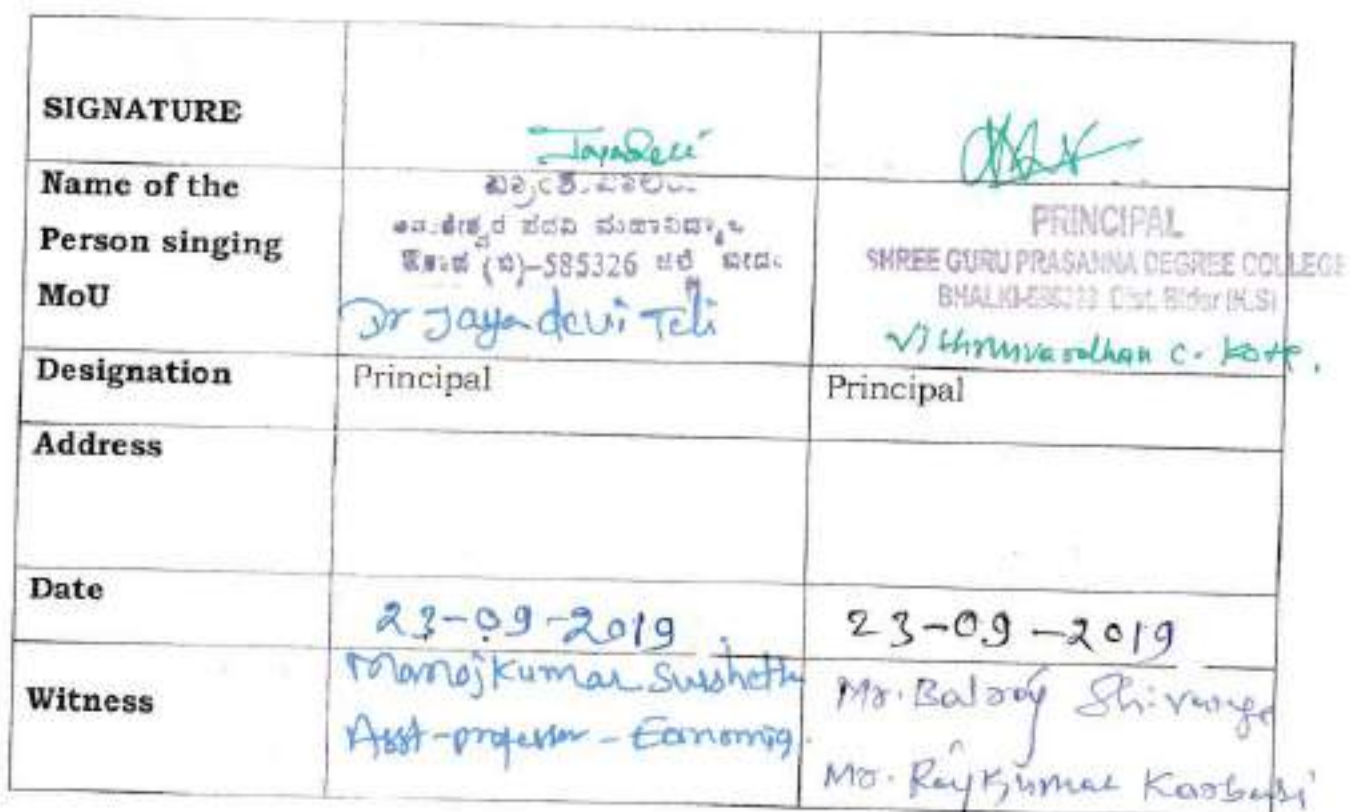 SIGNATURE
Jayadevi
Name of the
Person singing
MoU
-585326
Dr Jayadevi Teli
PRINCIPAL
SHREE GURU PRASANNA DEGREE COLLEGE
BHALKI- Dist. Bidar (K.S)
C. Kote.
Designation
Principal
Principal
Address
Date
23-09-2019
23-09-2019
Witness
Manojkumar
Asst-professor - Economics.
Mr. Balaji
Mr. Rajkumar Karbari